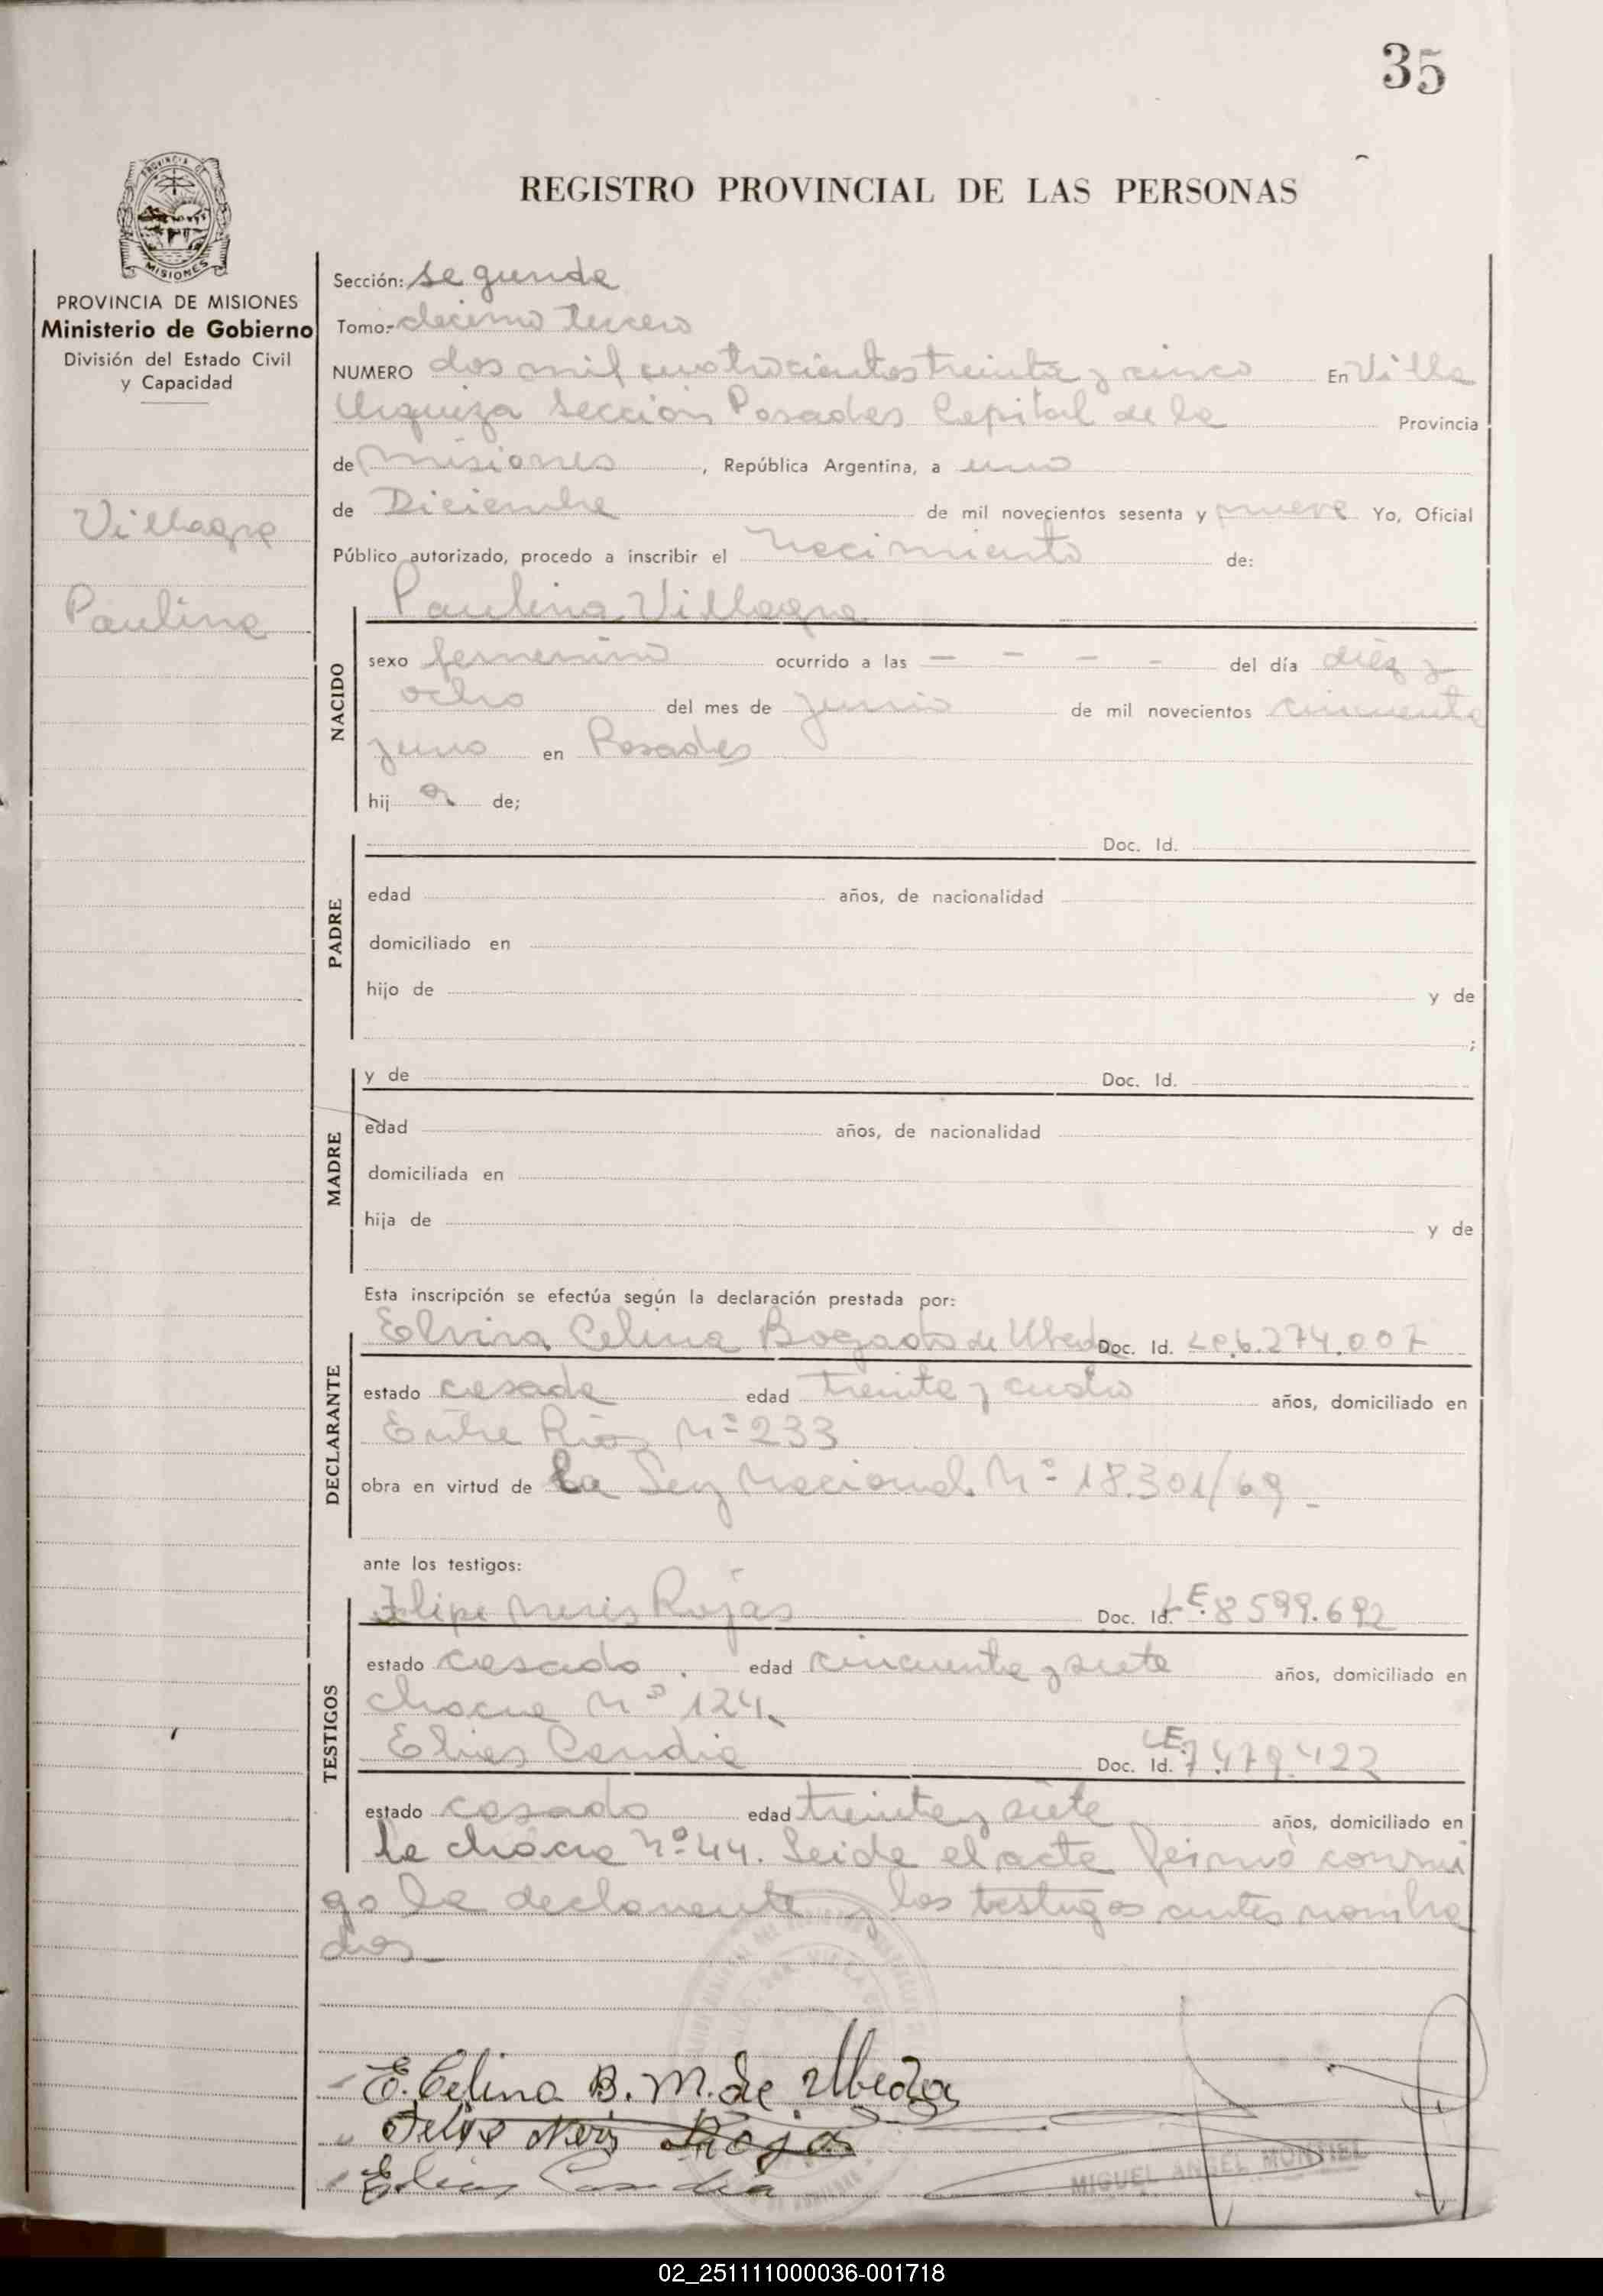 35
REGISTRO PROVINCIAL DE LAS PERSONAS
MISIONES
PROVINCIA DE MISIONES
Ministerio de Gobierno
División del Estado Civil
y Capacidad
Villagra
Paulina
Sección: segunda
Tomo: decimo tercero
NUMERO dos mil cuatrocientos treinta y cinco En Villa
Urquiza Sección Posadas Capital de la Provincia
de Misiones, República Argentina, a uno
de Diciembre de mil novecientos sesenta y nueve Yo, Oficial
Público autorizado, procedo a inscribir el nacimiento de:
Paulina Villagra
NACIDO
sexo femenino ocurrido a las — - - - del día diez y
ocho del mes de junio de mil novecientos cincuenta
y uno en Posadas
hij a de;
PADRE
Doc. Id.
edad años, de nacionalidad
domiciliado en
hijo de y de
;
MADRE
y de Doc. Id.
edad años, de nacionalidad
domiciliada en
hija de y de
Esta inscripción se efectúa según la declaración prestada por:
DECLARANTE
Elvira Celina Bogado de Ubeda Doc. Id. LC.6.274.007
estado casada edad treinta y cuatro años, domiciliado en
Entre Rios Nº 233
obra en virtud de la Ley Nacional Nº 18.301/69 -
ante los testigos:
TESTIGOS
Felipe Neris Rojas Doc. Id. LE.8599.692
estado casado. edad cincuenta y siete años, domiciliado en
chacra Nº 124.
Elias Candia Doc. Id. LE.7.479.422
estado casado edad treinta y siete años, domiciliado en
la chacra nº 44. Leida el acta firmó conmi
go la declarante y los testigos antes nombra
dos
E. Celina B. M. de Ubeda
Felipe Neris Rojas
Elias Candia
MIGUEL ANGEL MONTIEL
02_251111000036-001718